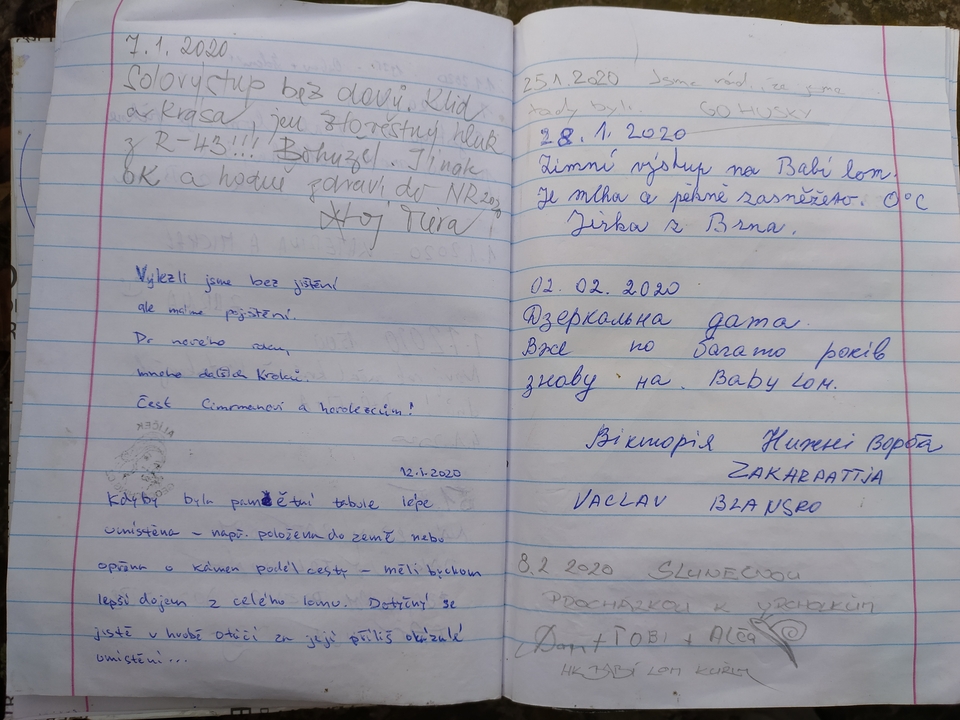 7.1.2020
Sólovýstup bez davů, klid
a krása, jen zlověstný hluk
z R-43!!! Bohužel. Jinak
OK a hodně zdraví do NR 2020
Ahoj
Vylezli jsme bez jištění
ale máme pojištění.
Do nového roku,
mnoho dalších kroků.
Čest Cimrmanovi a horolezcům!
12.1.2020
Kdyby byla pamětní tabule lépe
umístěna – např. položena do země nebo
opřena o kámen podél cesty – měli bychom
lepší dojem z celého lomu. Dotyčný se
jistě v hrobě otáčí za její příliš okázalé
umístění...
25.1.2020 Jsme rádi, že jsme
tady byli. GO HUSKY
28.1.2020
Zimní výstup na Babí lom.
Je mlha a pěkně zasněženo. 0°C
Jirka z Brna.
02.02.2020
Дзеркальна дата.
Вже по багато років
знову на Baby Lom.
Вікторія Нижні Ворота
ZAKARPATTIJA
VACLAV BLANSKO
8.2 2020 SLUNEČNOU
PROCHÁZKOU K VRCHOLKŮM
Dan + TOBI + Alča
HK BABÍ LOM KUŘIM